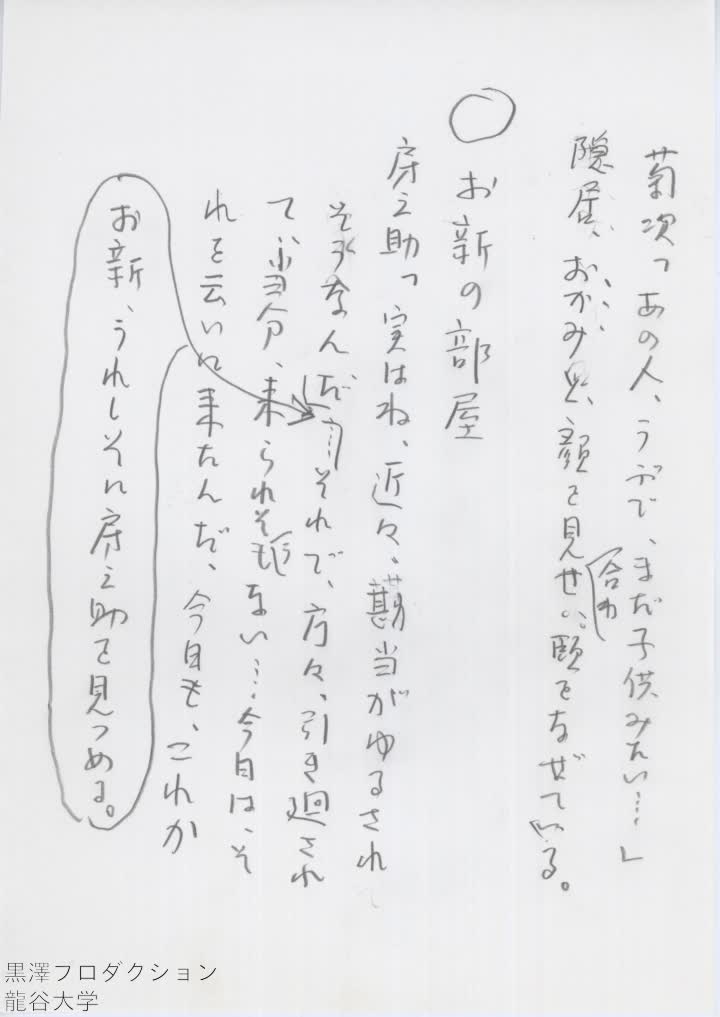 菊次「あの人、うぶで、まだ子供みたい…」
隠居、おかみと、顔を見せ合わ、頤をなぜている。
○お新の部屋
房之助「実はね、近々、勘当がゆるされ
そうなんだ…それで、方々、引き廻され
て、当分、来られそうもない…今日は、そ
れを云いに来たんだ、今日も、これか
お新、うれしそに房之助を見つめる。
黒澤フロダクション
龍谷大学